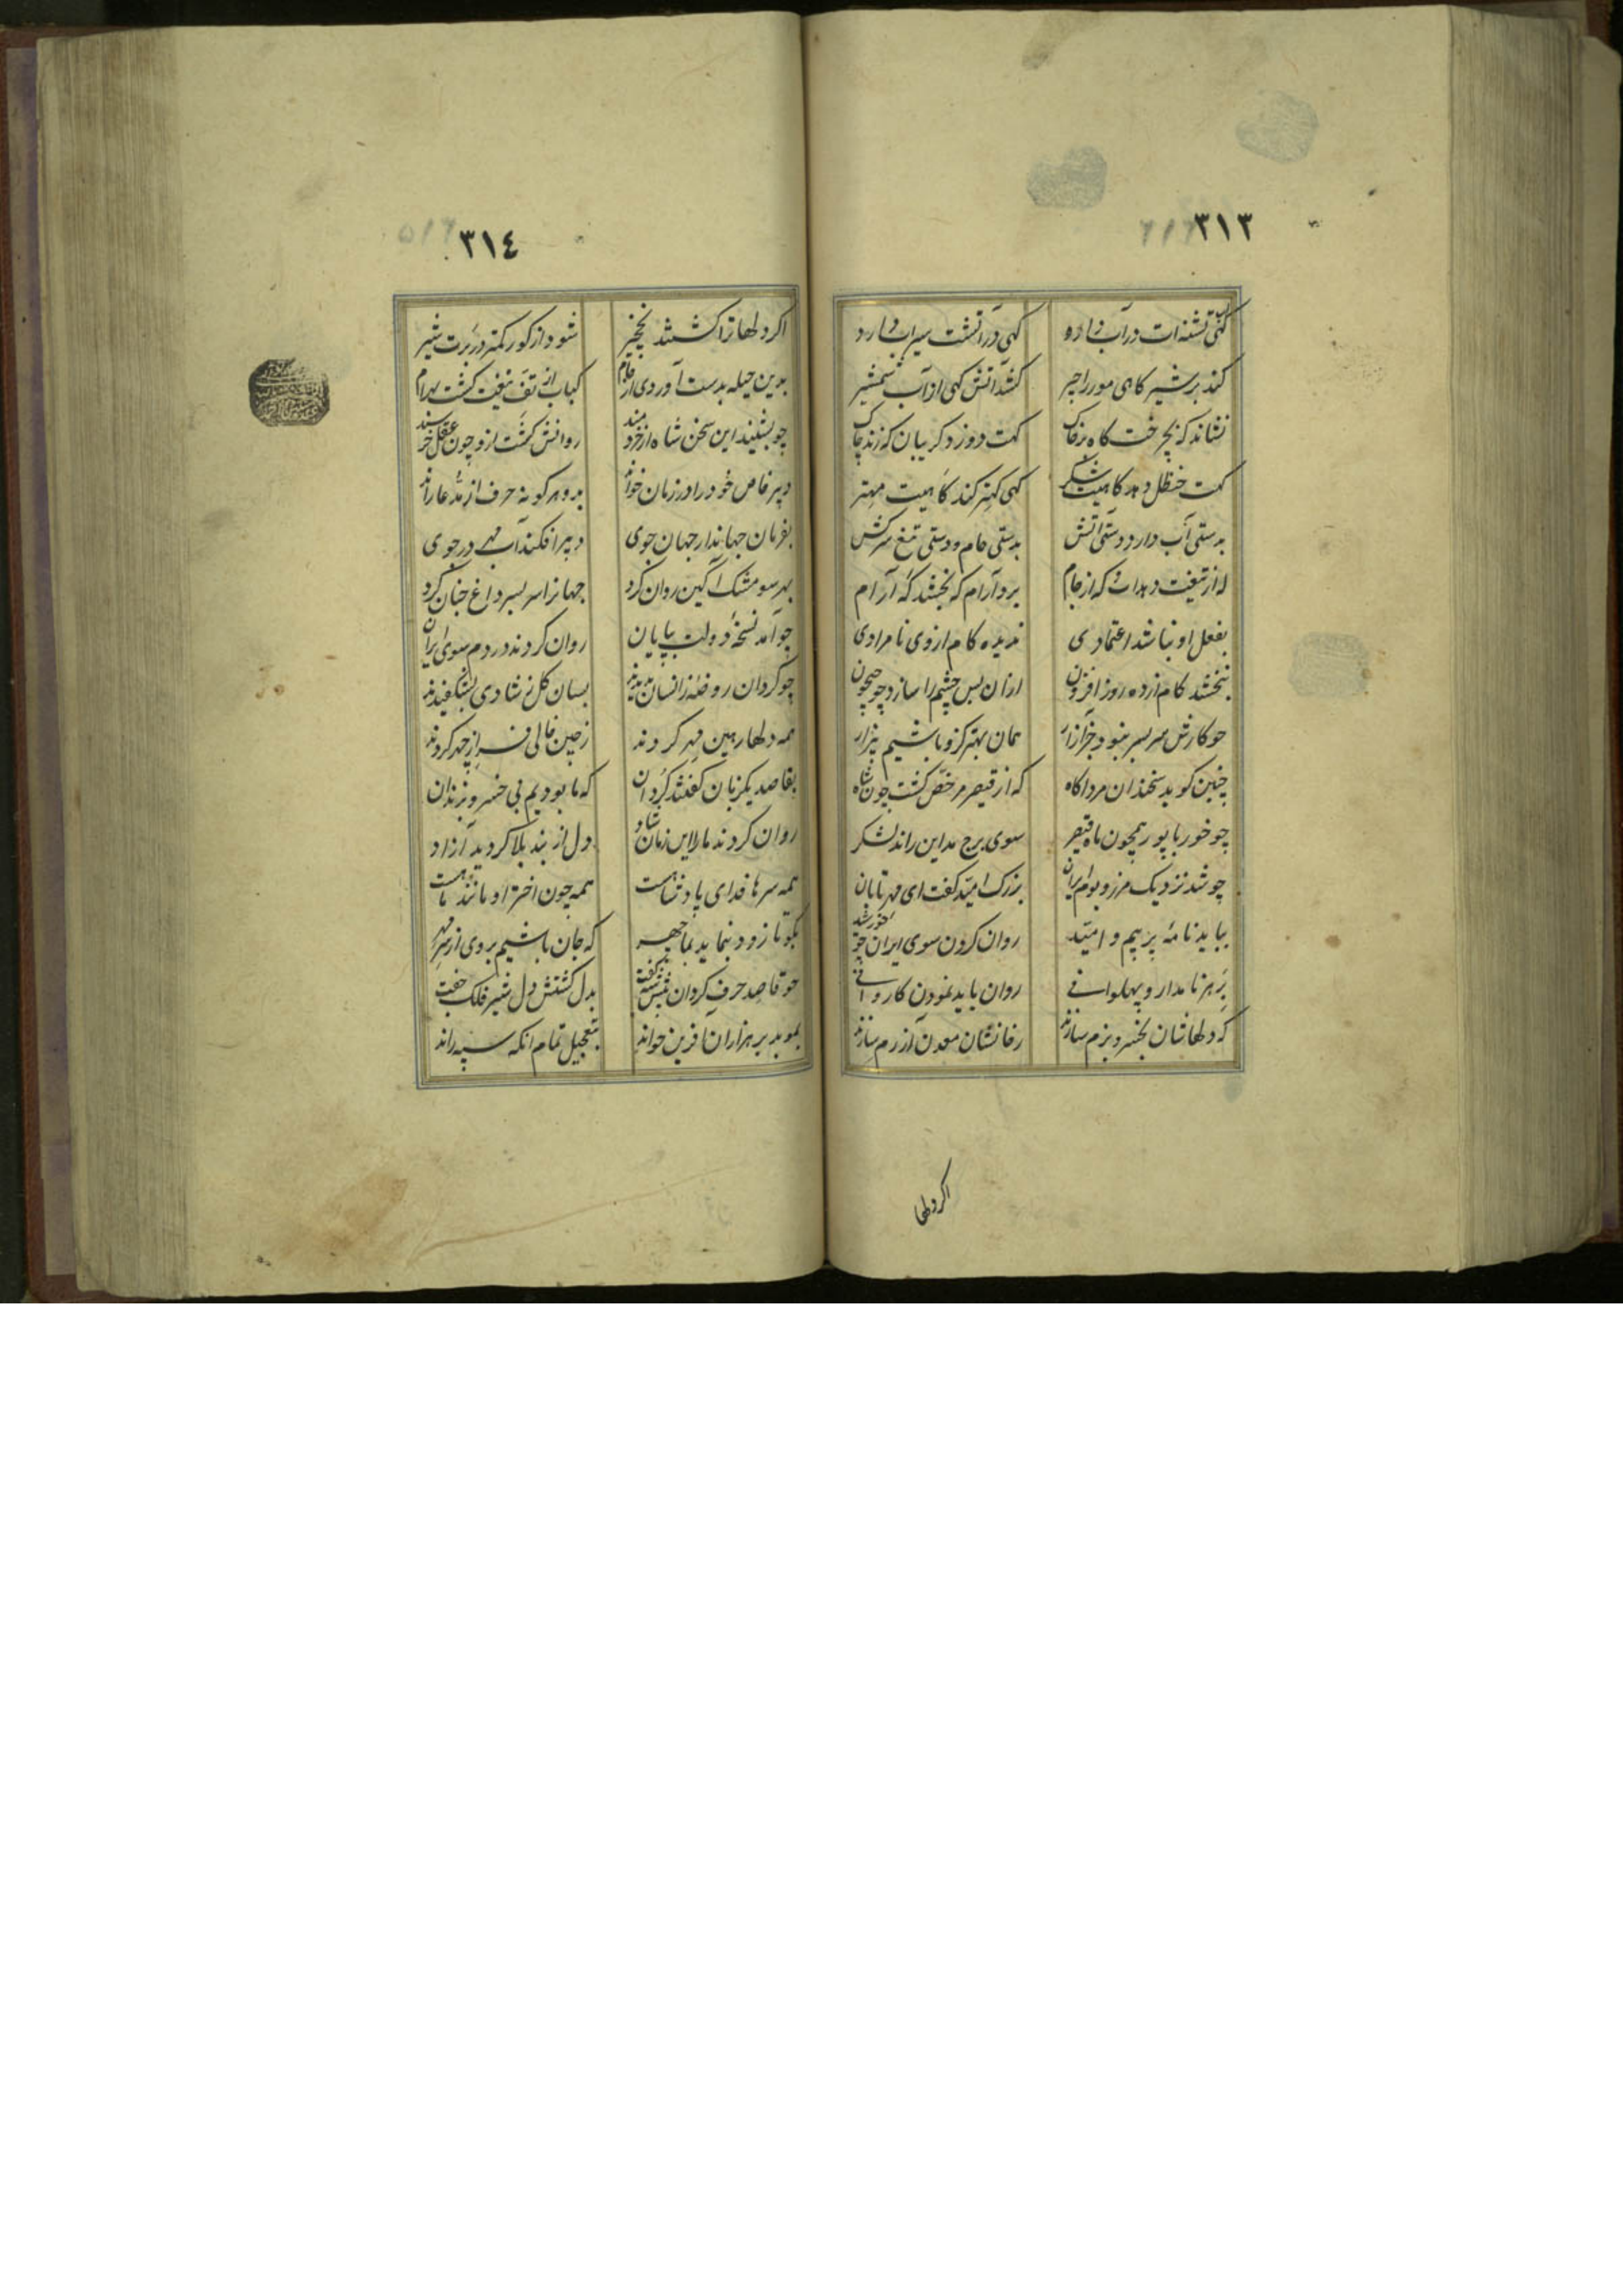 ٣١٣
گهی تشنه‌ات در آب دارد گهی در آتشت سیراب دارد
کند بر شیر گاهی مور را چیر کشد آتش گهی از آب شمشیر
نشاند گه بچرخت گاه بر خاک گهت دوزد گریبان گه زند چاک
گهت حنظل دهد گاهیت شکر گهی کهتر کند گاهیت مهتر
بدستی آب دارد دستی آتش بدستی جام و دستی تیغ سرکش
گه از تیغت دهد گه از جام برد آرام گه بخشد گه آرام
بفعل او نباشد اعتمادی ندیده کام از وی نامرادی
نبخشد کام از ده روز افزون از آن پس چشم را سازد چو جیحون
چو کارش سر بسر نبود جز آزار همان بهتر کزو باشیم بیزار
چنین گوید سخندان مرد آگاه که از قیصر مرخص گشت چون شاه
چو خور با پور همچون ماه قیصر سوی برج مداین راند لشکر
چو شد نزدیک مرز و بوم ایران بزرگ امید گفت ای مهر تابان
بباید نامهٔ پر بیم و امید روان کردن سوی ایران چو خورشید
بر هر نامدار و پهلوانی روان باید نمودن کاروانی
که دلهاشان بخسرو بزم سازند رخانشان معدن آزرم سازند
اگر دلها
٣١٤
اگر دلها ترا گشتند نخچیر شود از گور کمتر در برت شیر
بدین حیله بدست آوردی از کباب از تف تیغت گشت بهرام
چو بشنید این سخن شاه از خردمند روانش گشت ازو چون عقل خرسند
دبیر خاص خود را در زمان خواند برو هر گونه حرف از مدعا راند
بفرمان جهاندار جهان جوی دبیر افکند آب در جوی
بهر سو مشک آگین روان کرد جهانرا سر بسر داغ جنان کرد
چو آمد نسخهٔ دولت بپایان روان کردند در دم سوی ایران
چو گردان روضهٔ زانسان بدیدند بسان گل ز شادی بشکفیدند
همه دلها رهین مهر کردند ز چین خالی چهر کردند
بقاصد یکزبان گفتند گردان که ما بودیم بی خسرو بزندان
روان کردند ما را این زمان شاد دل از بند بلا گردید آزاد
همه سرها فدای پادشاهست همه چون اختر او مانند ماهست
بگو تا زود بنماید بما چهر که جان باشیم بروی از سر مهر
چو قاصد حرف گردان پیش شه گفت بدل گشتش دل شیر فلک جفت
بموبد بر هزاران آفرین خواند بتعجیل تمام آنگه سپه راند